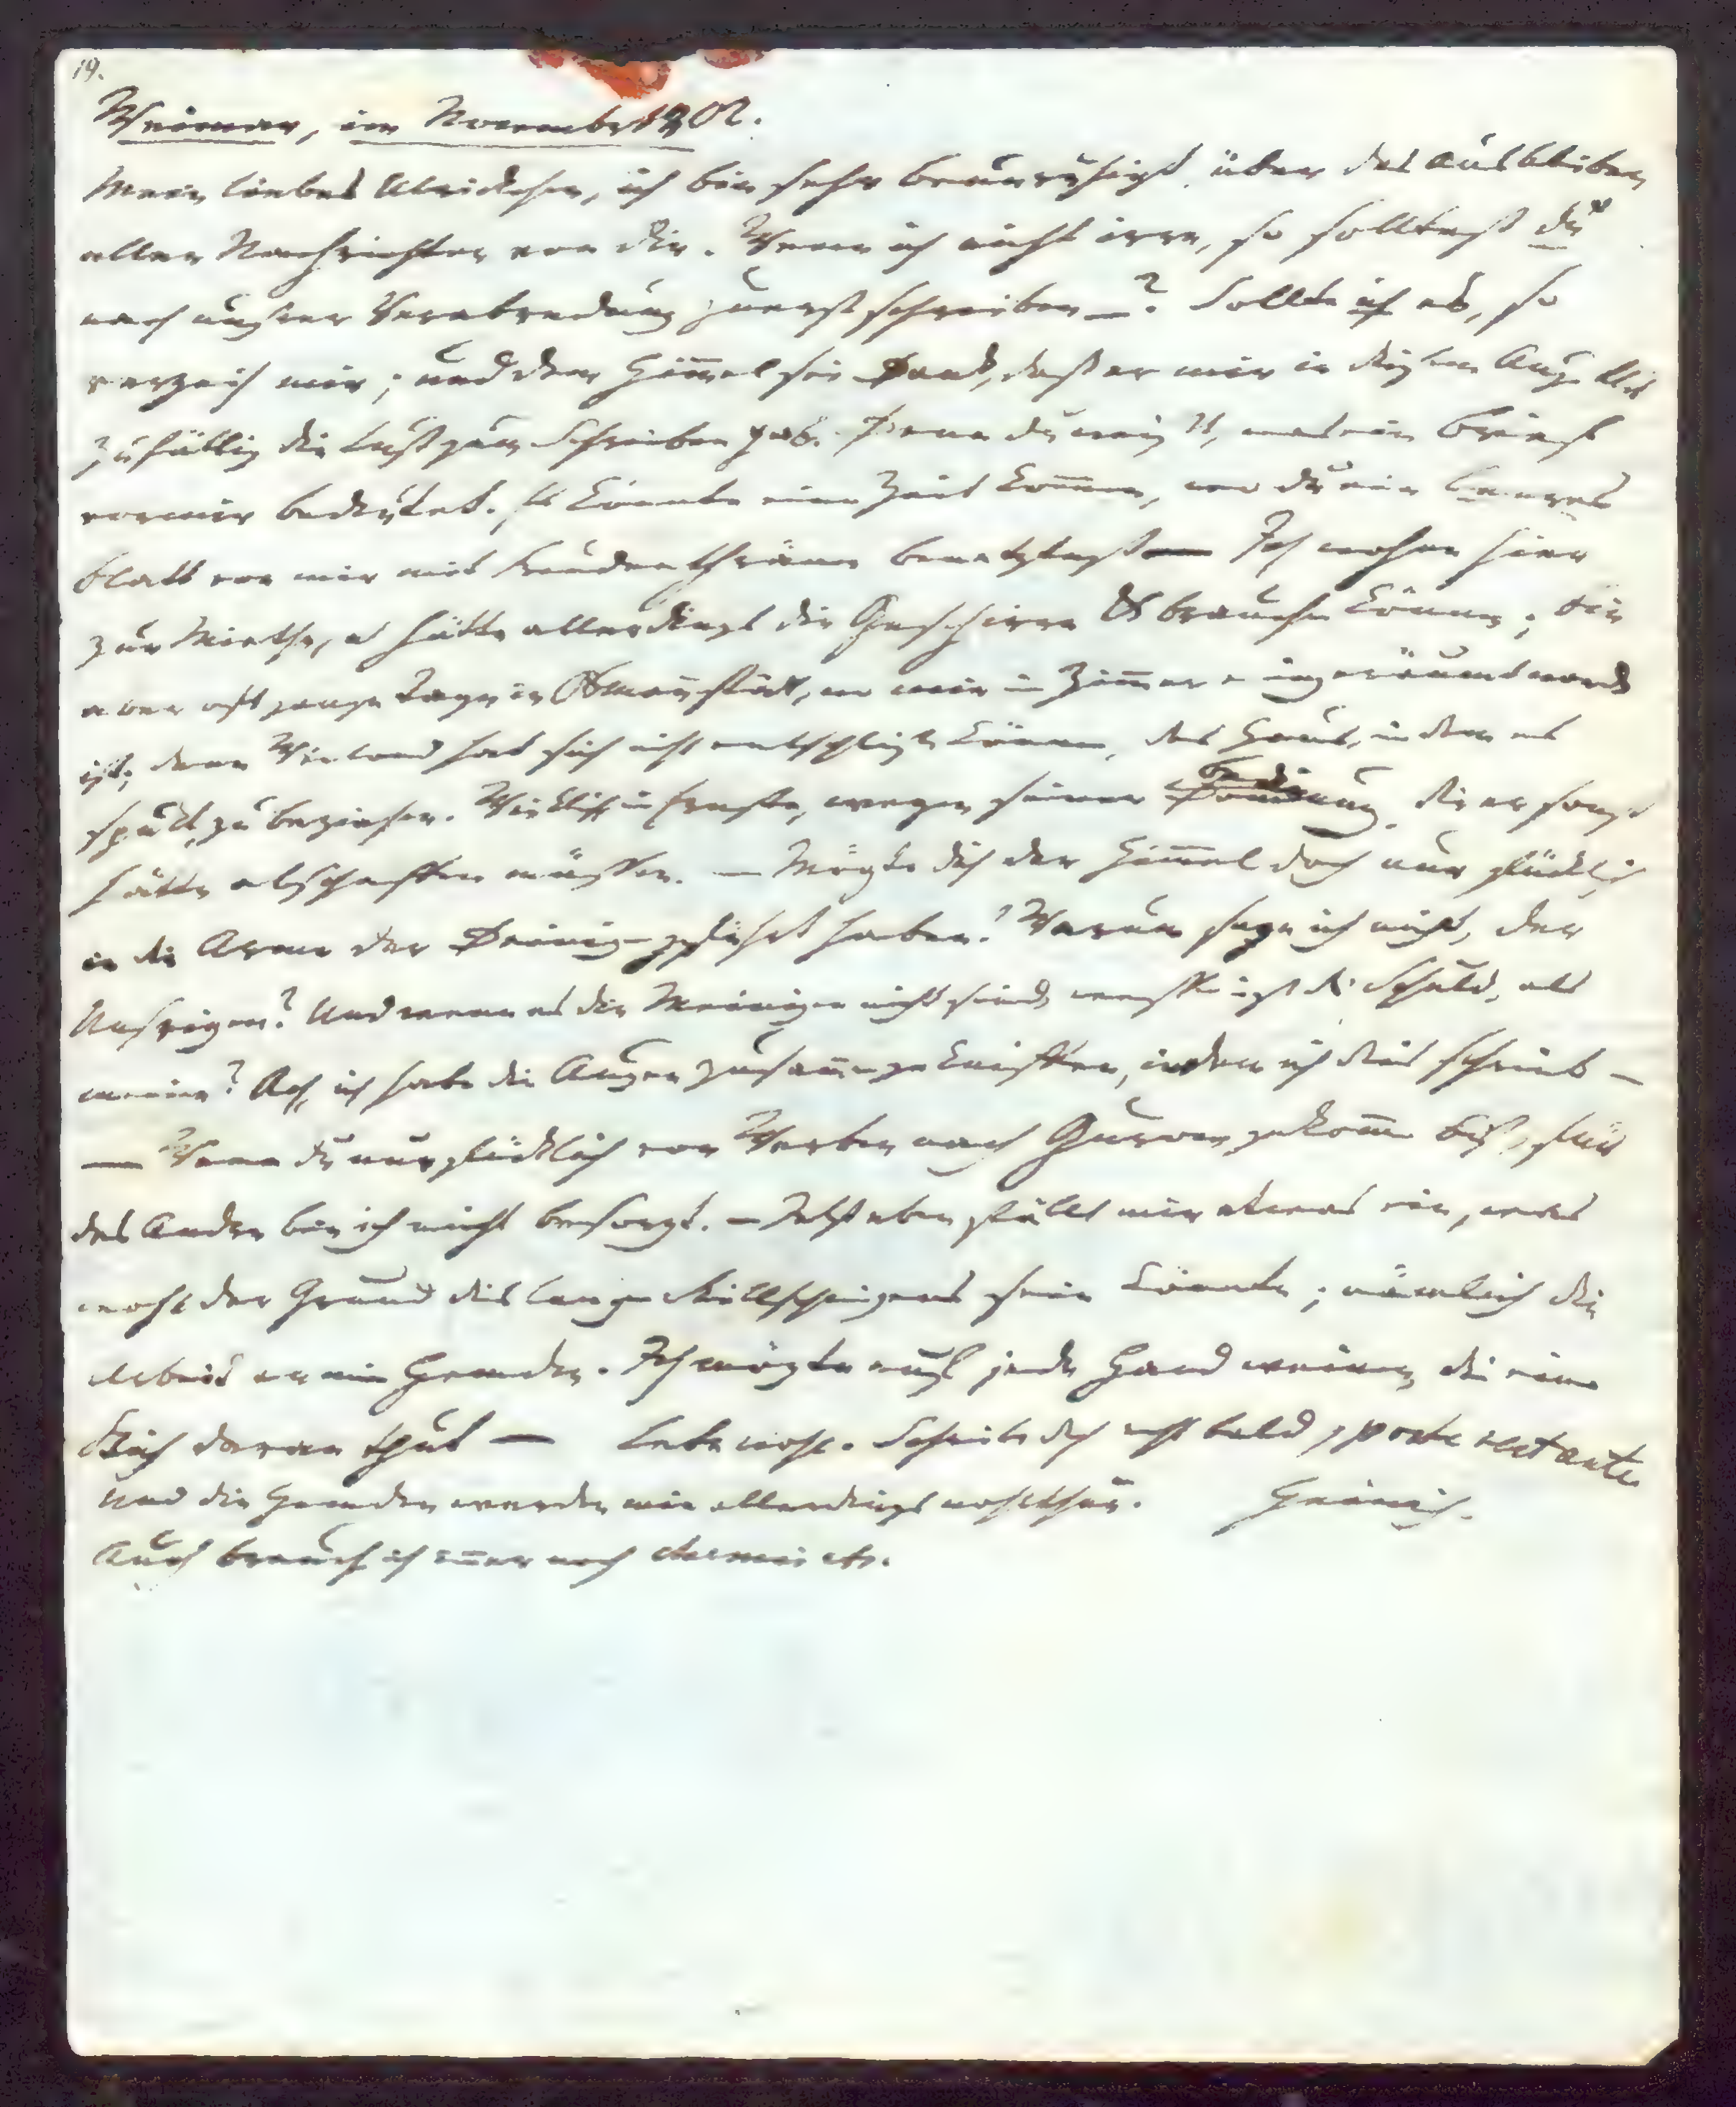 19.
Weimar, im November 1802.
Mein liebes Ulrickchen, ich bin sehr beunruhigt, über das Ausbleiben
aller Nachrichten von dir. Wenn ich nicht irre, so solltest du
nach unsrer Verabredung zuerst schreiben —? Sollte ich es, so
verzeih mir; und dem Him̅el sei Dank, daß er mir in diesem Augenblick
zufällig die Lust zum Schreiben gab. Denn du weißt, was ein Brief
von mir bedeutet. Es könnte eine Zeit kom̅en, wo du ein leeres
Blatt von mir mit Freudenthränen benetztest — Ich wohne hier
zur Miethe, u hätte allerdings die Geschirre &c brauchen können; bin
aber oft ganze Tage in Osmanstädt, wo mir ein Zim̅er eingeräumt worden
ist; denn Wieland hat sich nicht entschließen können, das Haus, in dem es
spukt, zu beziehen. Wirklich im Ernste, wegen seiner Bedienung, die er sonst
hätte abschaffen müssen. — Mögte dich der Him̅el doch nur glücklich
in die Arme der Deinigen geführt haben! Warum sage ich nicht, der
Unsrigen? Und wenn es die Meinigen nicht sind, wessen ist die Schuld, als
meine? Ach, ich habe die Augen zusam̅engekniffen, indem ich dies schrieb —
— Wenn du nur glücklich von Werben nach Guhrow gekom̅en bist, für
das Andre bin ich nicht besorgt. — Jetzt eben fällt mir etwas ein, was
wohl der Grund deines langen Stillschweigens sein könnte; nämlich die
Arbeit an mein Hemden. Ich mögte auf jede Hand weinen, die einen
Stich daran thut — Lebe wohl. Schreibe doch recht bald, poste restante.
Und die Hemden werden mir allerdings wohlthun. Heinrich.
Auch brauch ich im̅er noch